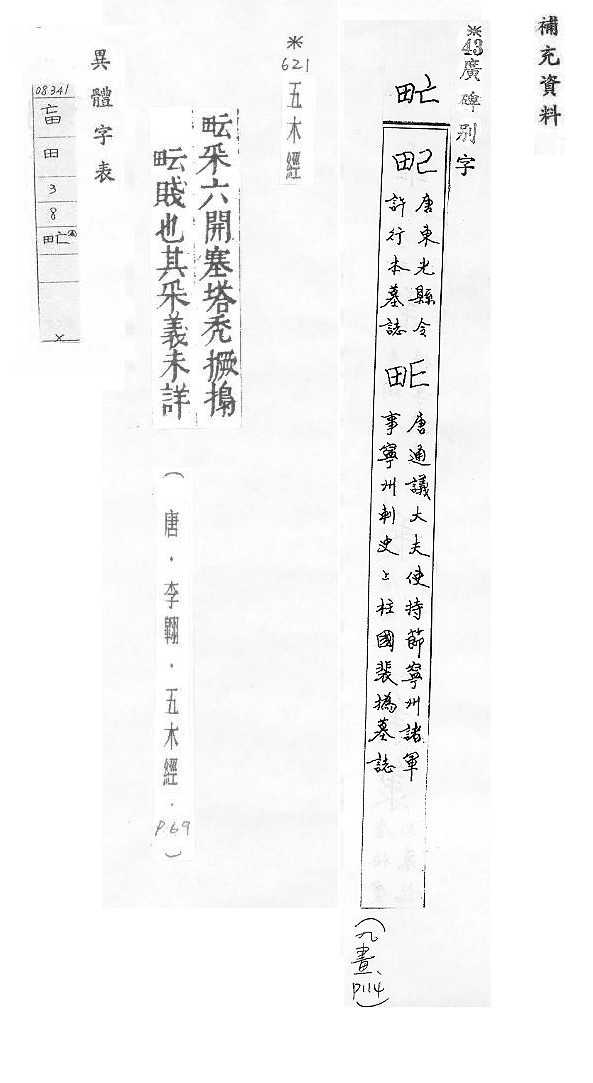 補充資料
※43廣碑別字
甿
唐東光縣令
許行本墓誌
唐通議大夫使持節寧州諸軍
事寧州刺史上柱國裴撝墓誌
(九畫、P114)
※621五木經
㽘采六開塞塔禿撅搗
㽘賤也其采義未詳
(唐.李翱.五木經.P69)
異體字表
08341
田
3
8
甿
×